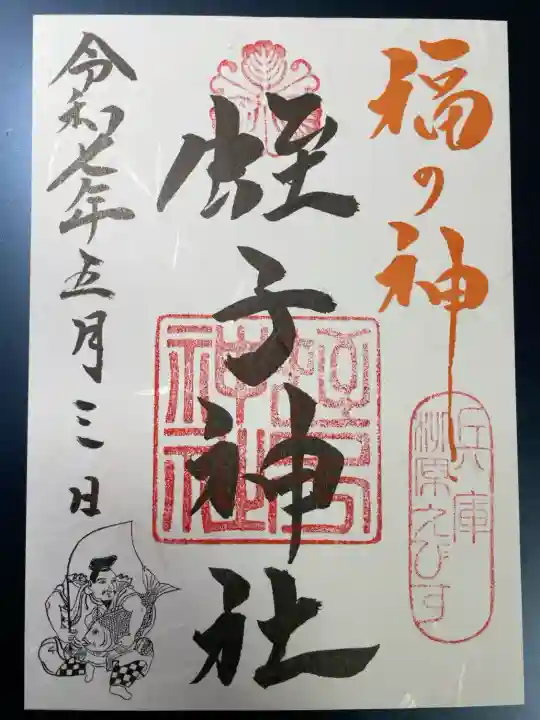 福の神
兵庫
柳原えびす
蛭子神社
蛭子
神社
令和七年五月三日